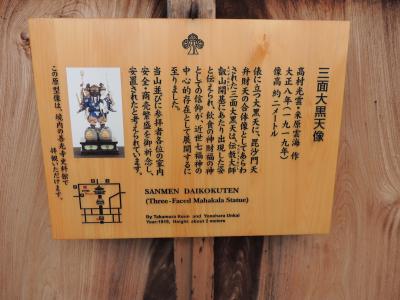 三面大黒天像
高村光雲・米原雲海 作
大正八年(一九一九年)
像高 約二メートル
俵に立つ大黒天に、毘沙門天
弁財天の合体像としてあらわ
された三面大黒天は、伝教大師
叡山開基にあたり出現した姿
と伝えられ、飲食の神財福の神
としての信仰が、近世七福神の
中心的存在として展開するに
至りました。
当山並びに参拝者各位の家内
安全・商売繁盛を御祈念し、
安置されたと考えられています。
この原型像は、境内の善光寺史料館で
拝観いただけます。
SANMEN DAIKOKUTEN
(Three-Faced Mahakala Statue)
By Takamura Koun and Yonehara Unkai
Year:1919, Height about 2 meters